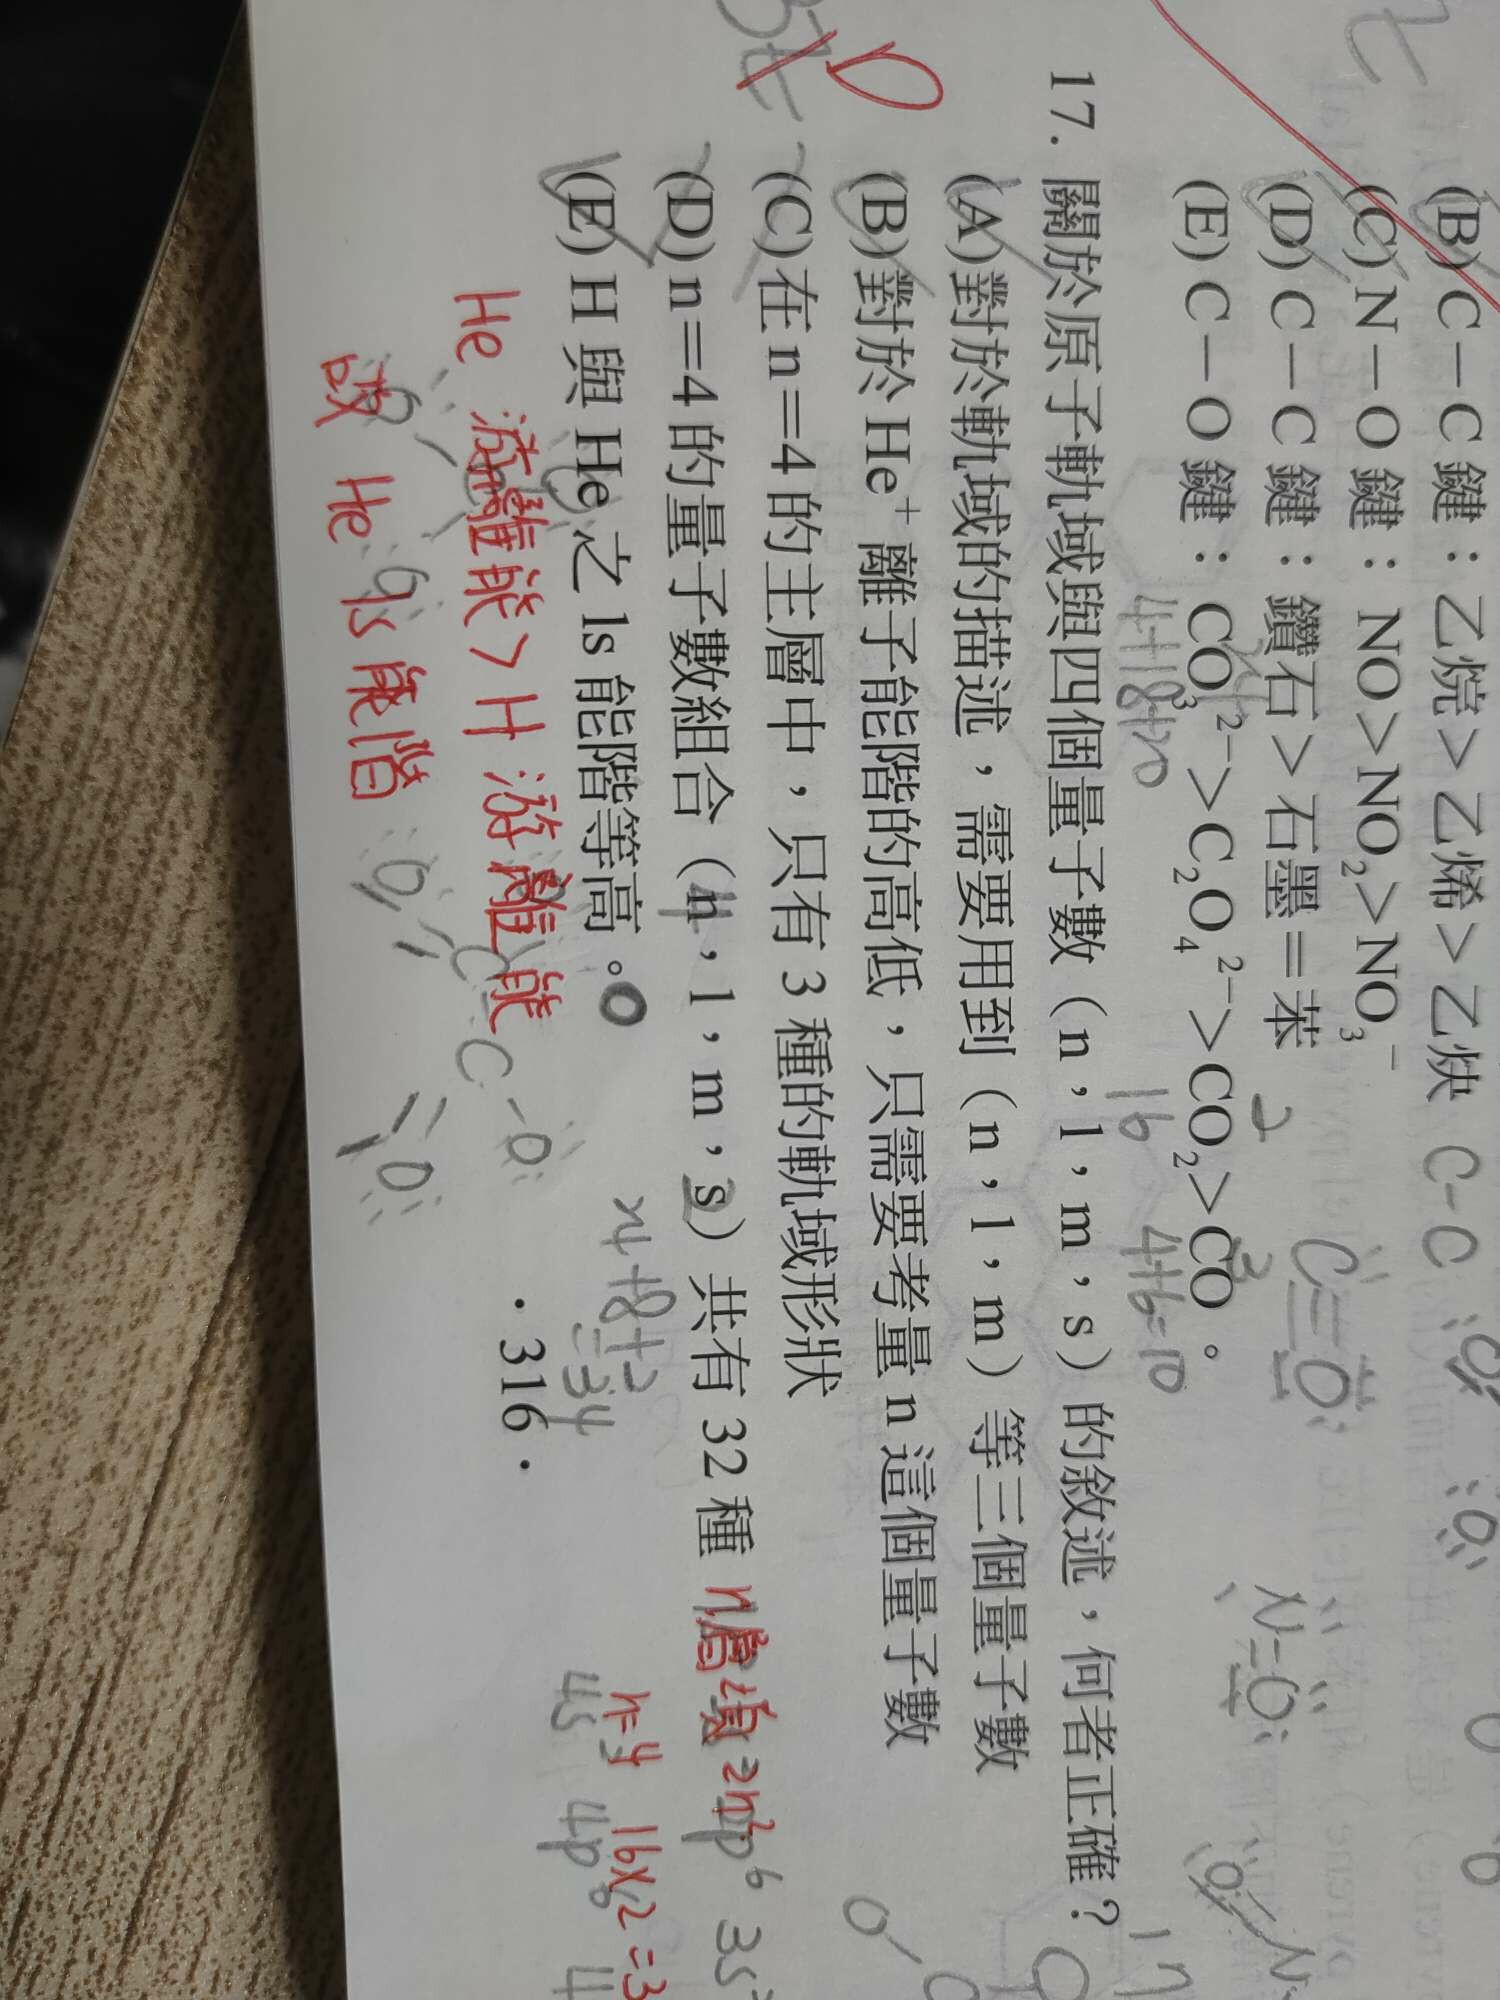 (B) C－C 鍵：乙烷＞乙烯＞乙炔 C-C
(C) N－O 鍵：NO＞NO₂＞NO₃⁻
(D) C－C 鍵：鑽石＞石墨＝苯
(E) C－O 鍵：CO₃²⁻＞C₂O₄²⁻＞CO₂＞CO。
2
3
C=O
N=O
4+18+20
16
4+6=10
17. 關於原子軌域與四個量子數（n，l，m，s）的敘述，何者正確？
(A)對於軌域的描述，需要用到（n，l，m）等三個量子數
(B)對於 He⁺離子能階的高低，只需要考量 n 這個量子數
(C)在 n＝4 的主層中，只有 3 種的軌域形狀
(D) n＝4 的量子數組合（n，l，m，s）共有 32 種
n=4 16×2=3
4s 4p⁶ 4
(E) H 與 He 之 1s 能階等高。
He 游離能＞H 游離能
故 He
能階
C-O
=34
·316·